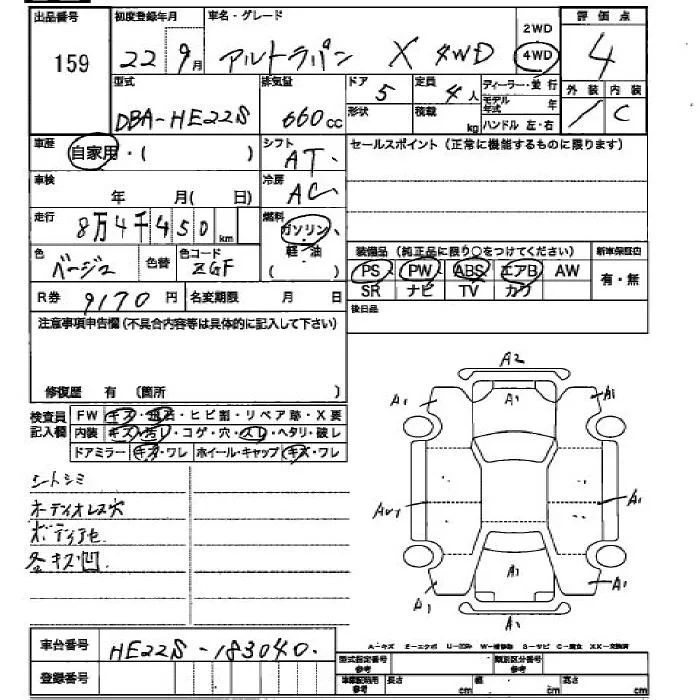 出品番号 初度登録年月 車名・グレード 2WD 評価点
159 22 9月 アルトラパン X 4WD 4WD 4
型式 排気量 ドア 定員 ディーラー・並行 外装 内装
DBA-HE22S 660cc 5 4人 モデル年式 年 / C
形状 積載 kg ハンドル 左・右
車歴 自家用・( ) シフト AT セールスポイント(正常に機能するものに限ります)
車検 年 月( 日) 冷房 AC
走行 8万4千450km 燃料 ガソリン・軽・油 ( )
色 ベージュ 色替 色コード ZGF
装備品(純正品に限り○をつけてください) 新車保証書
PS PW ABS エアB AW 有・無
SR ナビ TV カワ
R券 9170円 名変期限 月 日 後日品
注意事項申告欄(不具合内容等は具体的に記入して下さい)
修復歴 有 (箇所 )
検査員記入欄 FW キズ・飛石・ヒビ割・リペア跡・X要
内装 キズ・汚れ・コゲ・穴・スレ・ヘタリ・破レ
ドアミラー キズ・ワレ ホイール・キャップ キズ・ワレ
シートシミ
オーディオレス穴
ボディアセ
各キズ凹
A2
A1 A1 A1
A1
A1
A1 A1
A1
車台番号 HE22S-183040
登録番号
A-キズ E-エクボ U-凹み W-補修跡 S-サビ C-腐食 XX-交換済
型式指定番号 参考 類別区分番号 参考
車庫証明用 参考 長さ cm 幅 cm 高さ cm